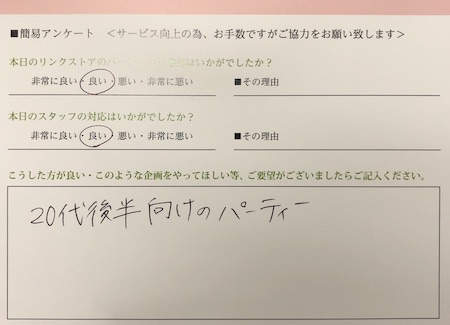 ■簡易アンケート <サービス向上の為、お手数ですがご協力をお願い致します>
本日のリンクストアのパーティーの内容はいかがでしたか？
非常に良い・良い・悪い・非常に悪い ■その理由
本日のスタッフの対応はいかがでしたか？
非常に良い・良い・悪い・非常に悪い ■その理由
こうした方が良い・このような企画をやってほしい等、ご要望がございましたらご記入ください。
20代後半向けのパーティー